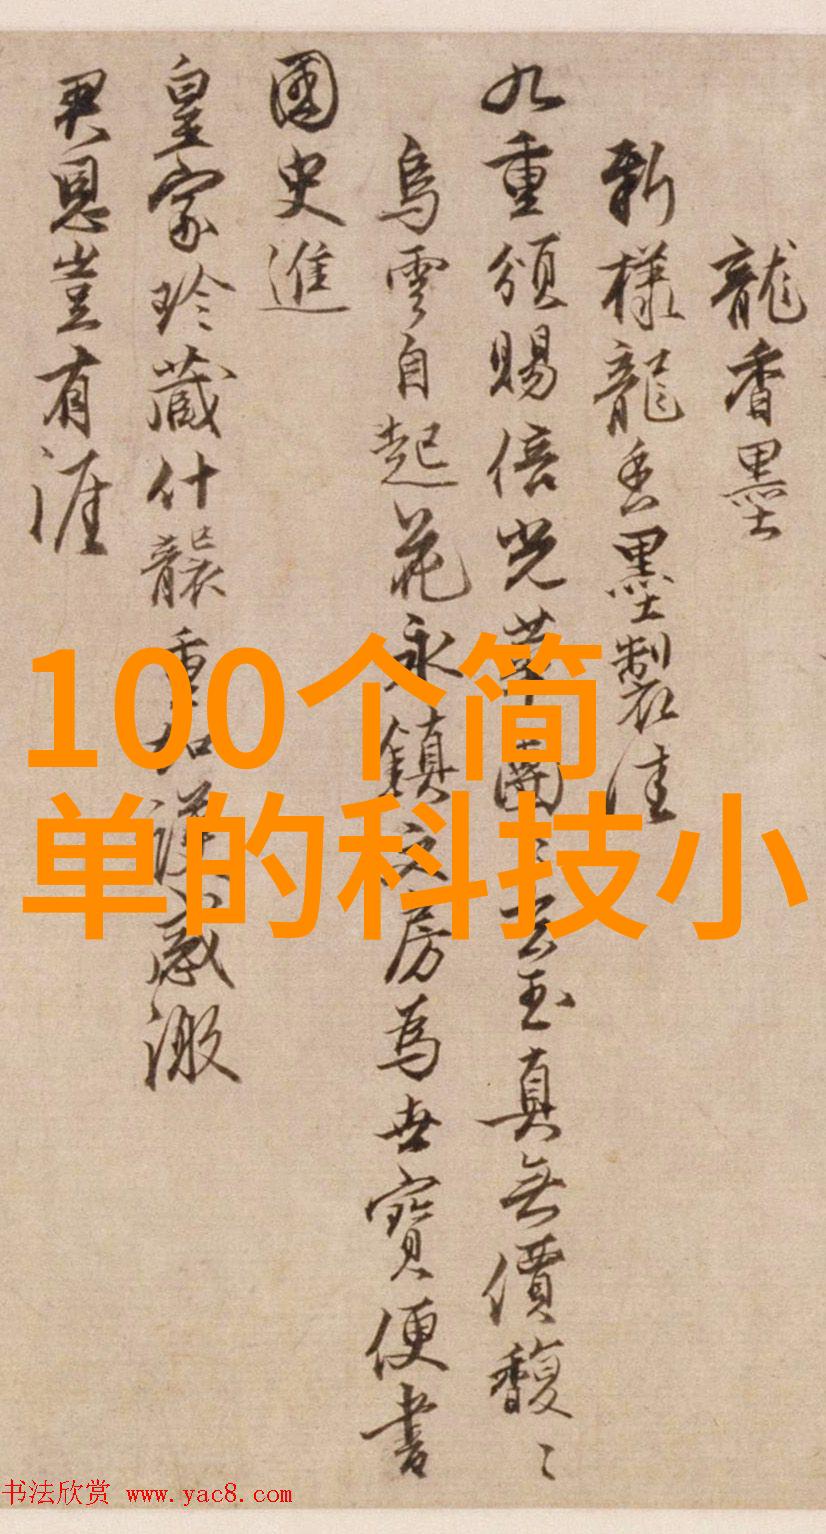 龍香墨
新樣龍香墨製佳
九重頒賜倍光華團團蒼玉真無價馥馥
烏雲自起花永鎮文房為世寶便書
國史進
皇家珍藏什襲重如護感激
君恩豈有涯
100个简
单的科技小
书法欣赏 www.yac8.com